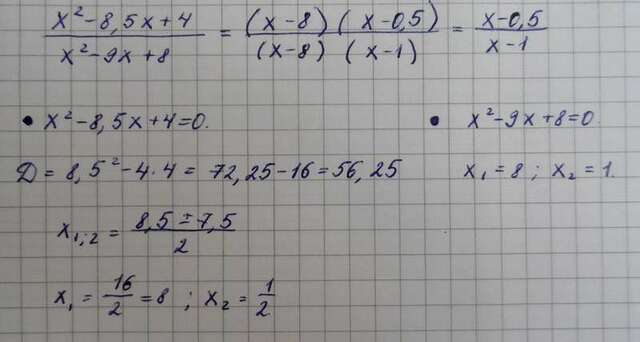 x²-8,5x+4 / x²-9x+8 = (x-8)(x-0,5) / (x-8)(x-1) = x-0,5 / x-1
• x²-8,5x+4=0. • x²-9x+8=0.
D = 8,5²-4·4 = 72,25-16=56,25 x₁=8; x₂=1.
x₁;₂ = 8,5±7,5 / 2
x₁ = 16/2 = 8; x₂ = 1/2